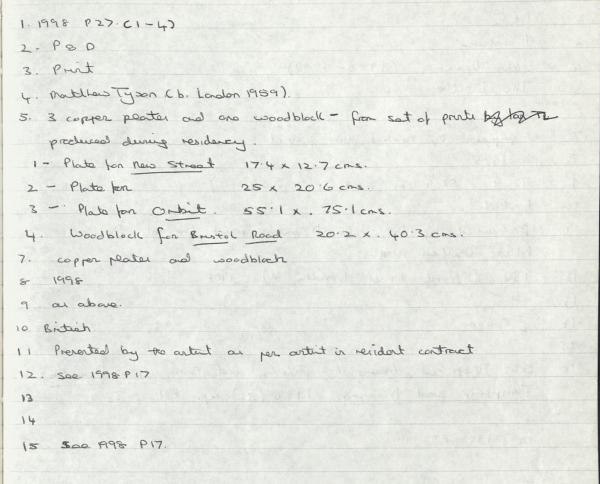 1. 1998 P27. (1-4)
2. P & D
3. Print
4. Matthew Tyson (b. London 1959).
5. 3 copper plates and one woodblock - from set of prints
produced during residency.
1 - Plate for New Street 17.4 x 12.7 cms.
2 - Plate for 25 x 20.6 cms.
3 - Plate for Orbit. 55.1 x 75.1 cms.
4. Woodblock for Bristol Road 20.2 x 40.3 cms.
7. copper plates and woodblock
8 1998
9 as above.
10 British
11 Presented by the artist as per artist in resident contract
12. See 1998 P17
13
14
15 See 1998 P17.